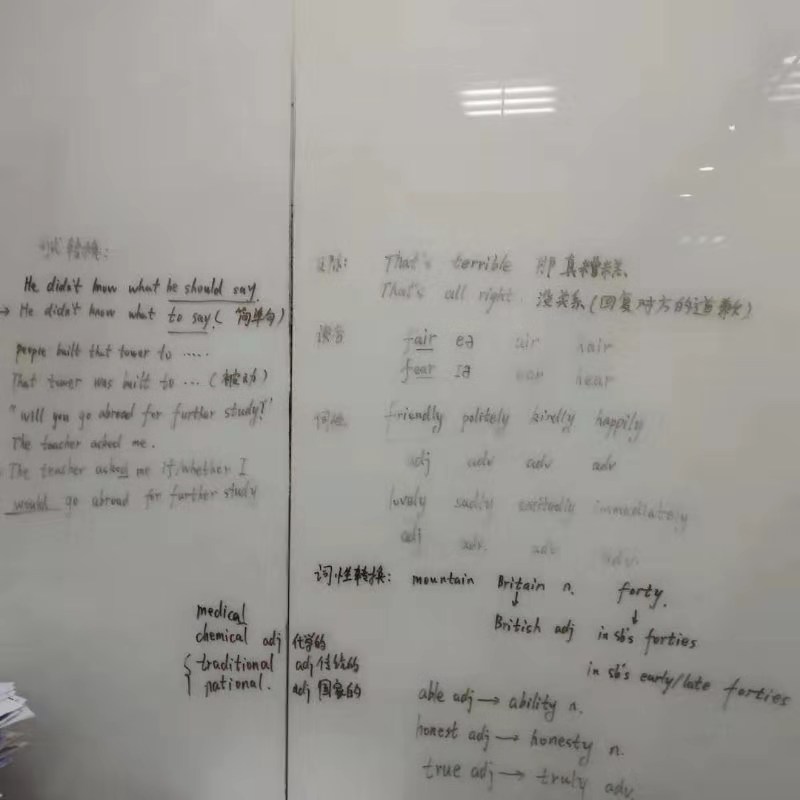 转换:
He didn't know what he should say.
→ He didn't know what to say. (简单句)
people built that tower to ……
That tower was built to … (被动)
"will you go abroad for further study?"
The teacher asked me.
The teacher asked me if/whether I
would go abroad for further study
medical
chemical adj 化学的
traditional adj 传统的
national. adj 国家的
That's terrible 那真糟糕.
That's all right. 没关系(回复对方的道歉)
fair eə air hair
fear ɪə ear hear
friendly politely kindly happily
adj adv adv adv
lovely sadly excitedly immediately
adj adv. adv adv.
词性转换: mountain Britain n. forty.
↓ ↓
British adj in sb's forties
in sb's early/late forties
able adj → ability n.
honest adj → honesty n.
true adj → truly adv.